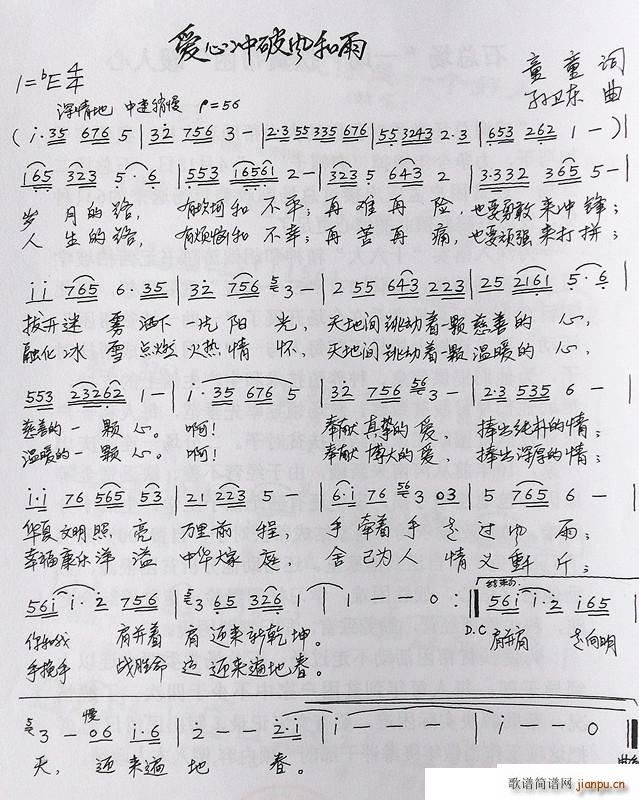 爱心冲破风和雨
1=bE 4/4
童童 词
孙卫东 曲
深情地 中速稍慢 ♩=56
(i·35 676 5 | 32 756 3 - | 2·3 55335 676 | 55 3243 2·3 | 653 262 1 - )
165 323 5·6 | 553 16561 2 - | 323 5 643 2 | 3·332 365 5 -
岁月的路, 有坎坷和不平; 再难再险, 也要勇敢来冲锋;
人生的路, 有烦恼和不幸; 再苦再痛, 也要顽强来打拼;
i i 765 6·35 | 32 756 3 - | 2 55 643 223 | 25 2161 5·6
拨开迷雾洒下一片阳光, 天地间跳动着一颗慈善的心,
融化冰雪点燃火热情怀, 天地间跳动着一颗温暖的心,
553 23262 1 - | i·35 676 5 | 32 756 56 3 - | 2·3 535 6 -
慈善的一颗心。啊! 奉献真挚的爱, 捧出纯朴的情;
温暖的一颗心。啊! 奉献博大的爱, 捧出深厚的情;
i·i 76 565 53 | 21 223 5 - | 6·i 76 56 3 03 | 5 765 6 -
华夏文明照亮万里前程, 手牵着手走过风雨;
幸福康乐洋溢中华大家庭, 舍己为人情义重千斤;
56i i·2 756 | 5 3 65 326 1 | 1 - - 0 :‖ 结束句 56i i·2 i65
你和我 肩并着肩迎来新乾坤。 D.C 肩并肩 走向明
手挽手 战胜命运迎来遍地春。
5 3 - 慢 06 i·6 | 2 - - 2·1 | i - - - | i - - 0 ‖
天, 迎来遍地春。
歌谱简谱网 jianpu.cn